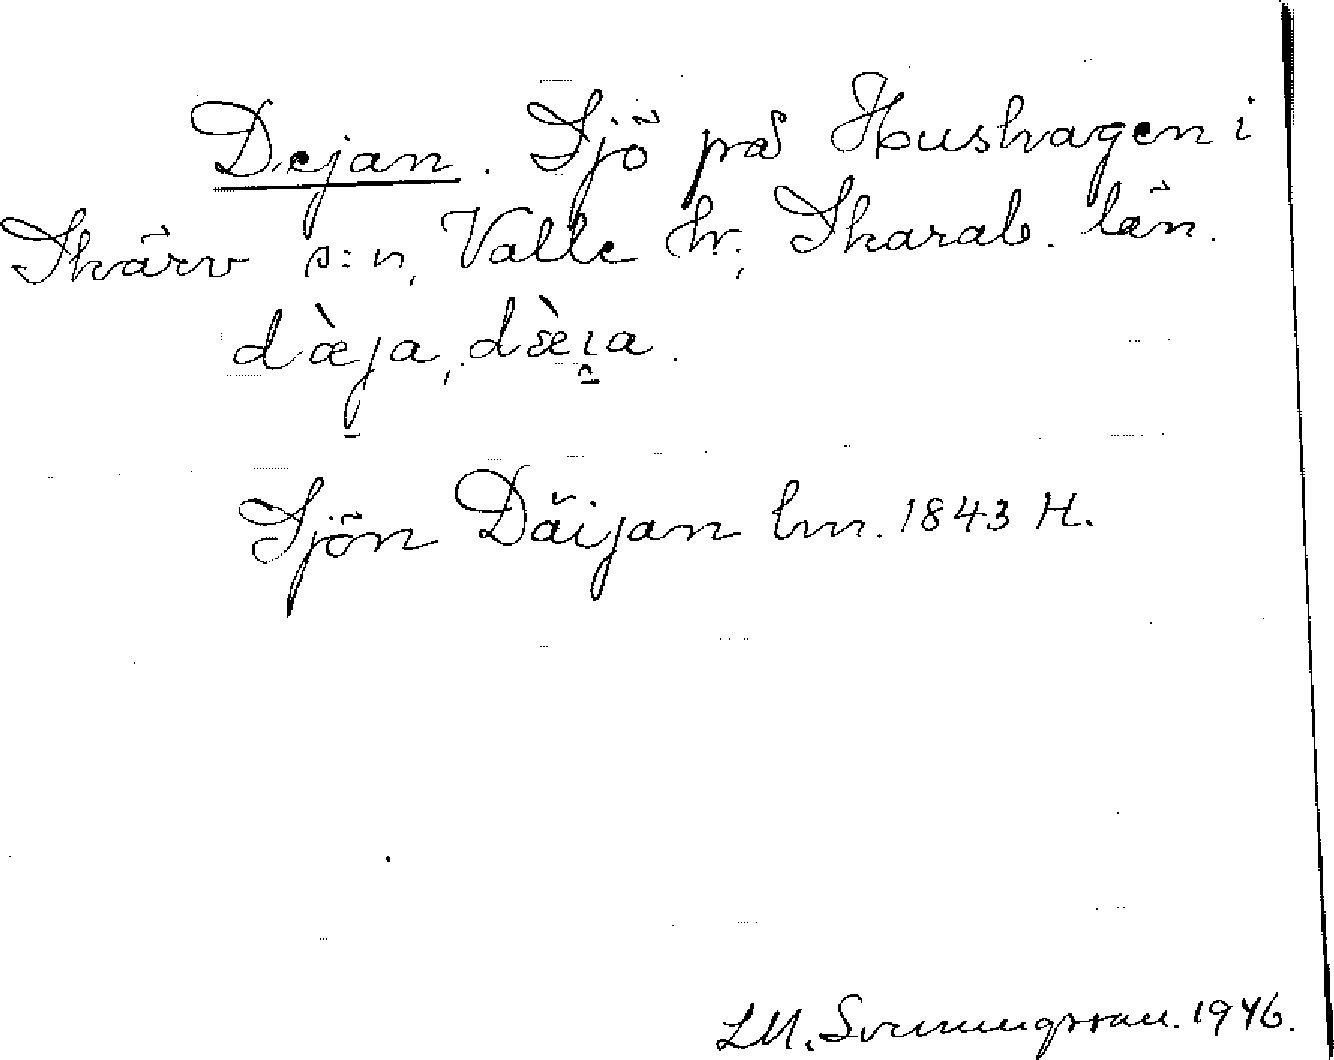 Dejan. Sjö på Hushagen i
Skärv s:n, Valle hr; Skarab. län.
dæ̀ja, dæ̀i̯a.
Sjön Däijan hm. 1843 H.
LM. Svenungsson. 1946.